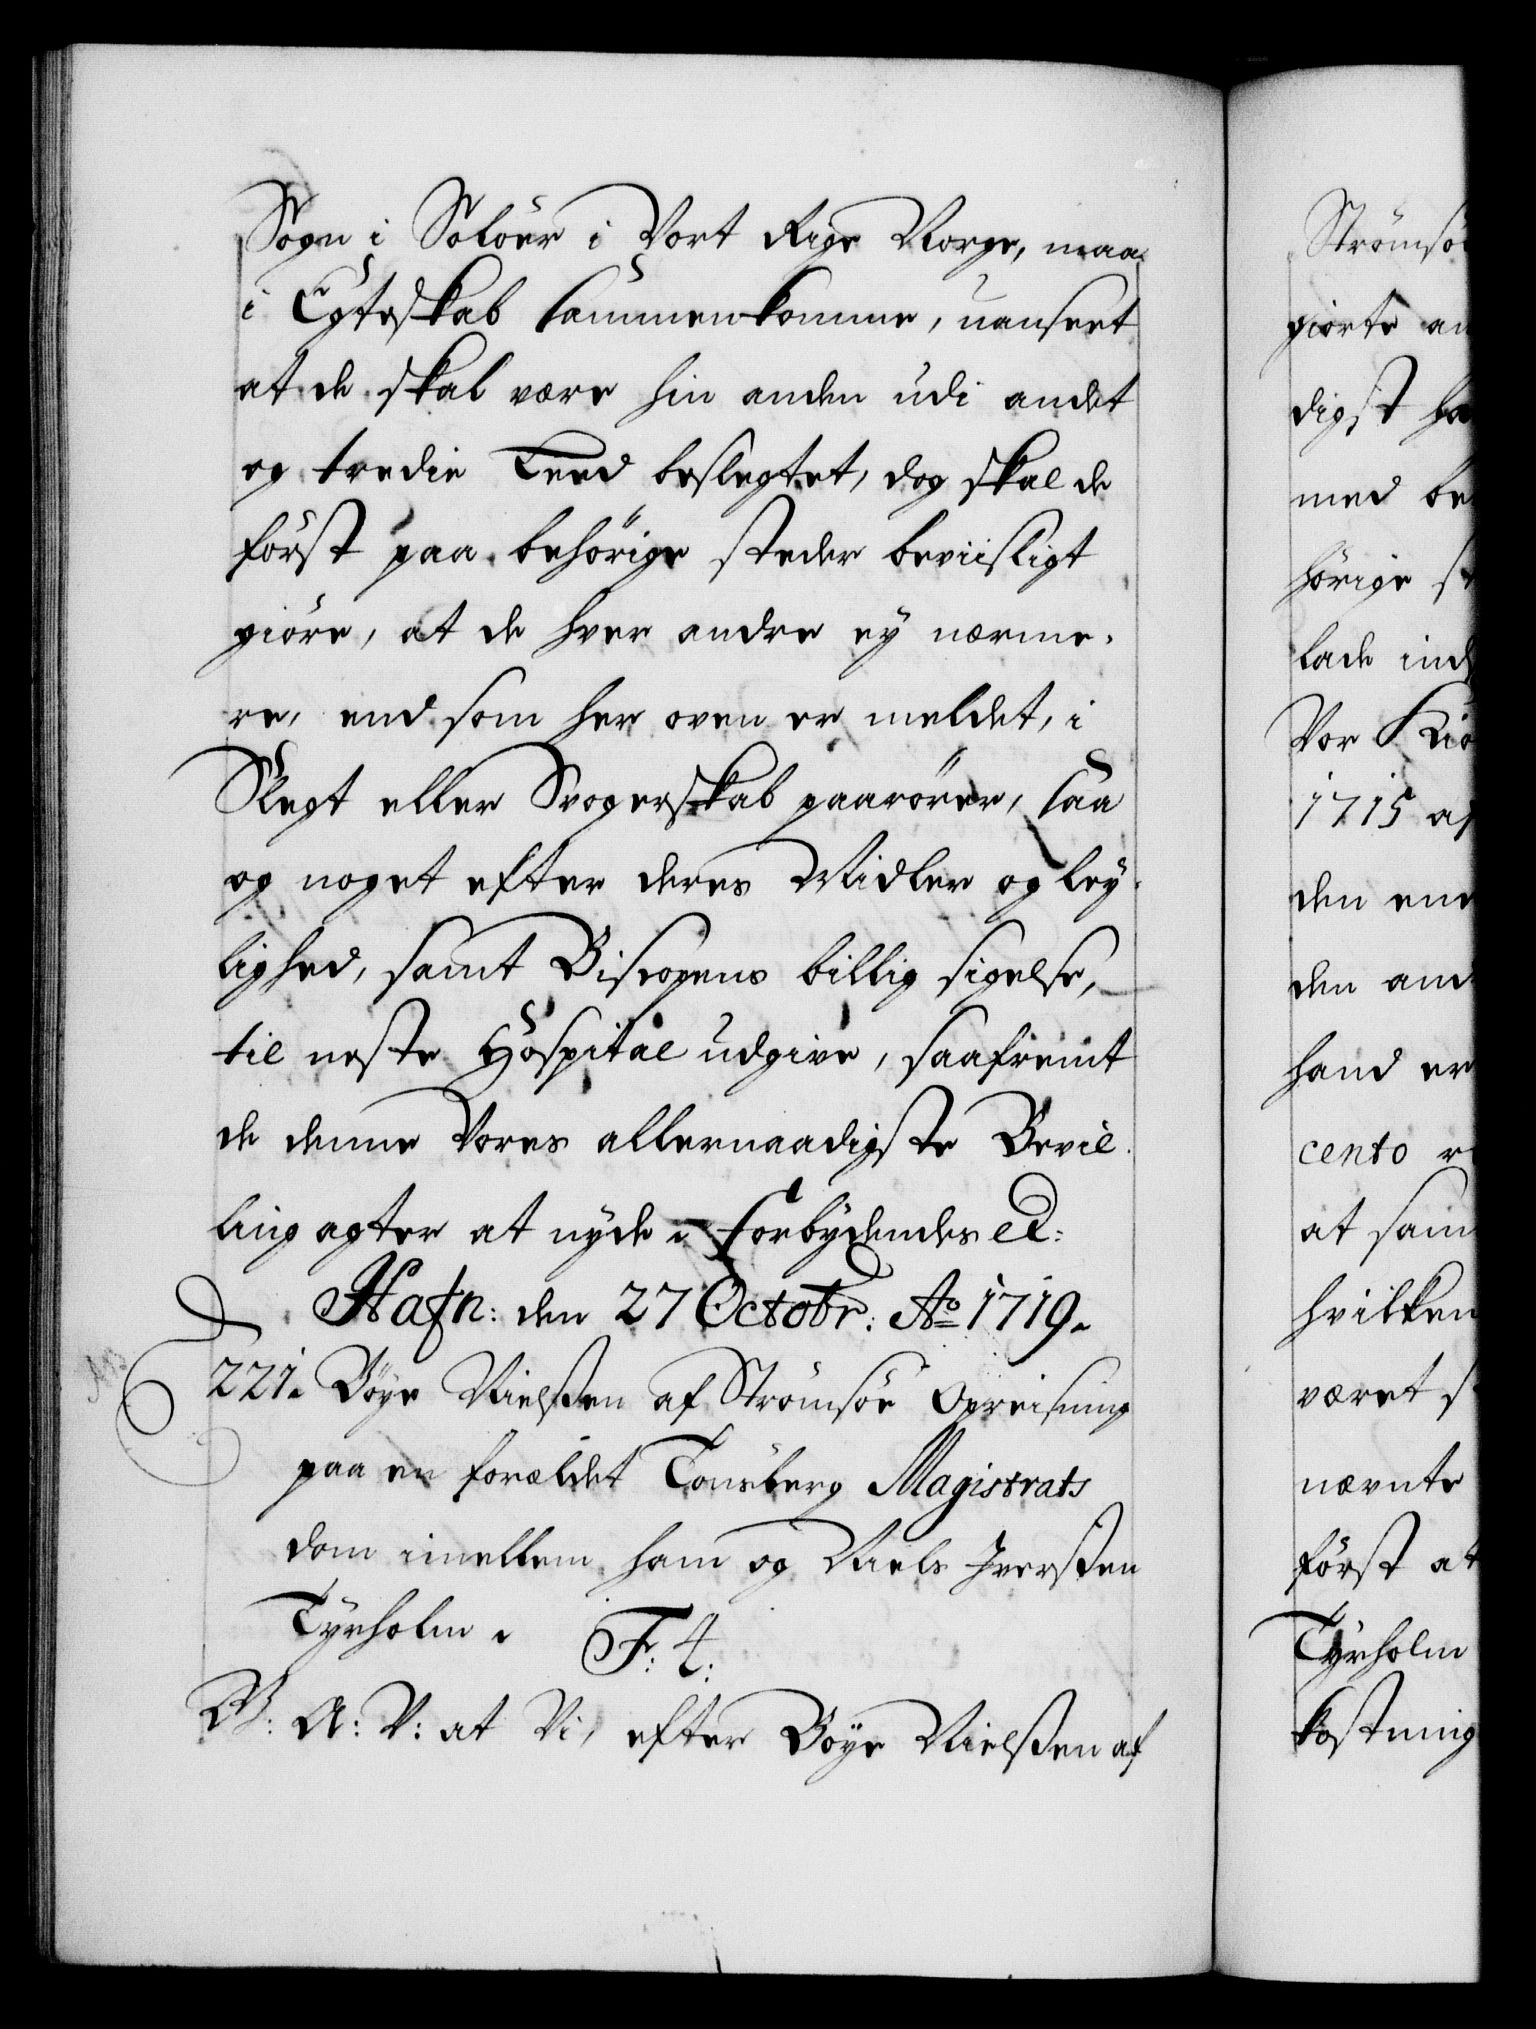 Sogn i Soløer i Vort Rige Norge, maa
i Egteskab sammenkomme, uanseet
at de skal være hin anden udi andet
og tredie Leed beslegtet, dog skal de
først paa behørige steder beviisligt
giøre, at de hver andre ey nærme-
re, end som her oven er meldet, i
Slegt eller Svogerskab paarører, saa
og noget efter deres Midler og ley-
lighed, samt Biscopens billig sigelse,
til neste Hospital udgive, saafremt
de denne Vores allernaadigste Bevil-
ling agter at nyde. Forbydendes etc:
Hafn: den 27 Octobr: Ao 1719.
221. Böye Nielssen af Strømsöe Opreisning
paa en forældet Tonsberg Magistrats
dom imellem ham og Niels Iverssen
Tyrholm. F: 4:
B: A: V: at Vi, efter Böye Nielssen af
Strømsö
giorte an
digst
med be
hörige st
lade ind
Vor Kiö
1715 af
den ene
den and
hand er
cento
at sam
hvilken
været s
nævnte
först at
Tyrholm
kostning